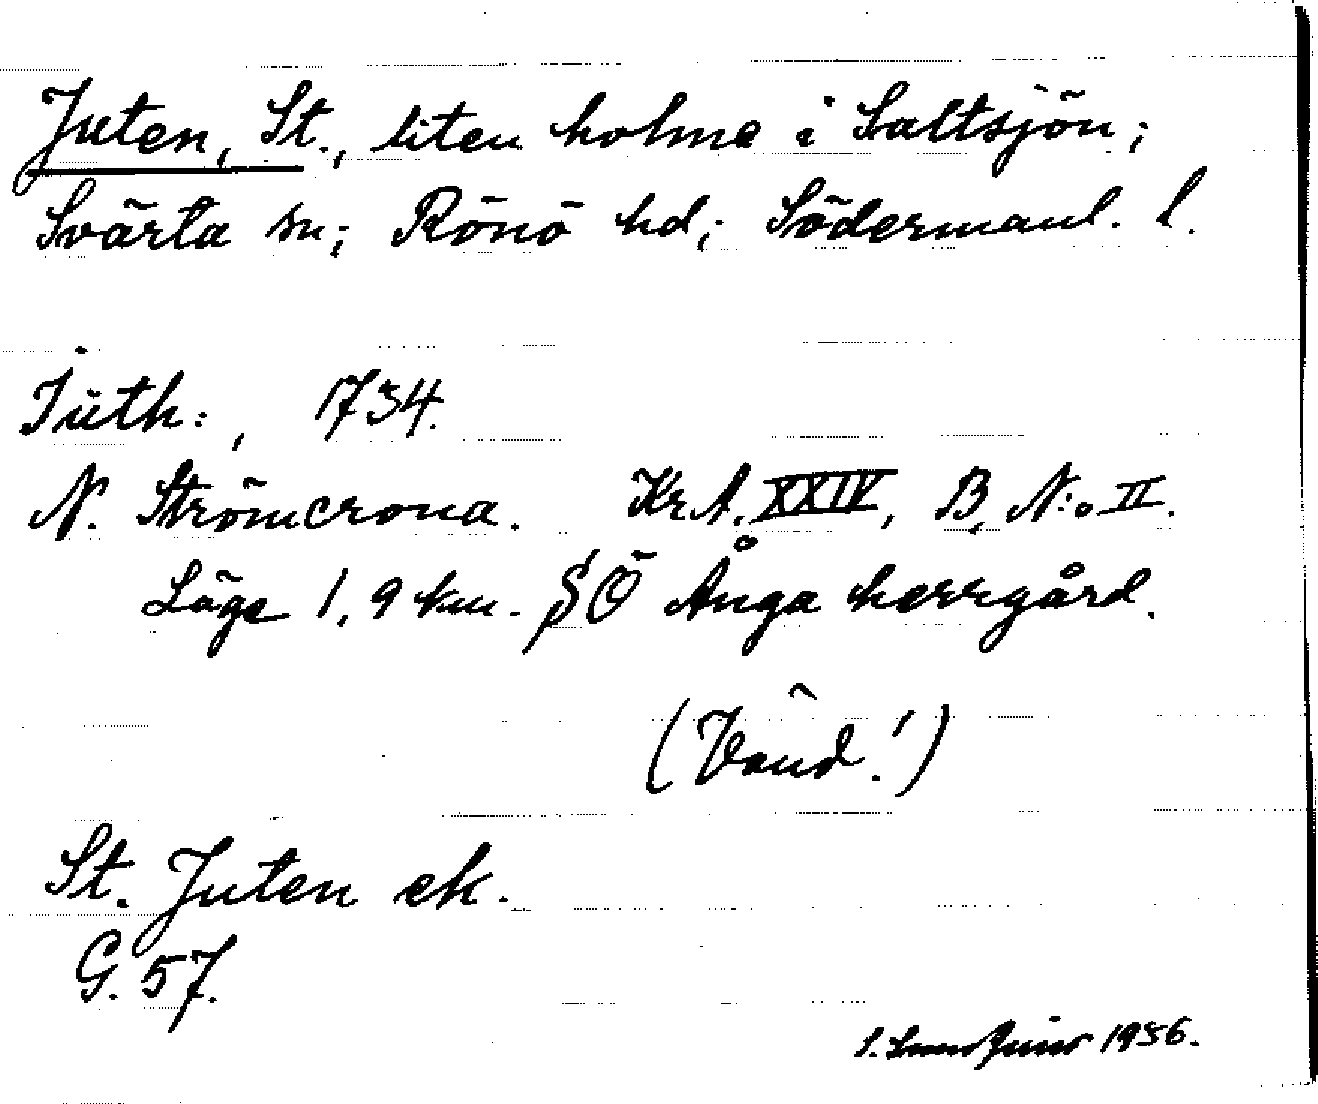 Juten, St., liten holme i Saltsjön;
Svärta sn; Rönö hd; Södermanl. l.
Jüth:, 1734.
N. Strömcrona. KrA. XXIV, B, N:o II.
Läge 1,9 km. SÖ Ånga herrgård.
(Vänd!)
St. Juten ek.
G. 57.
1956.